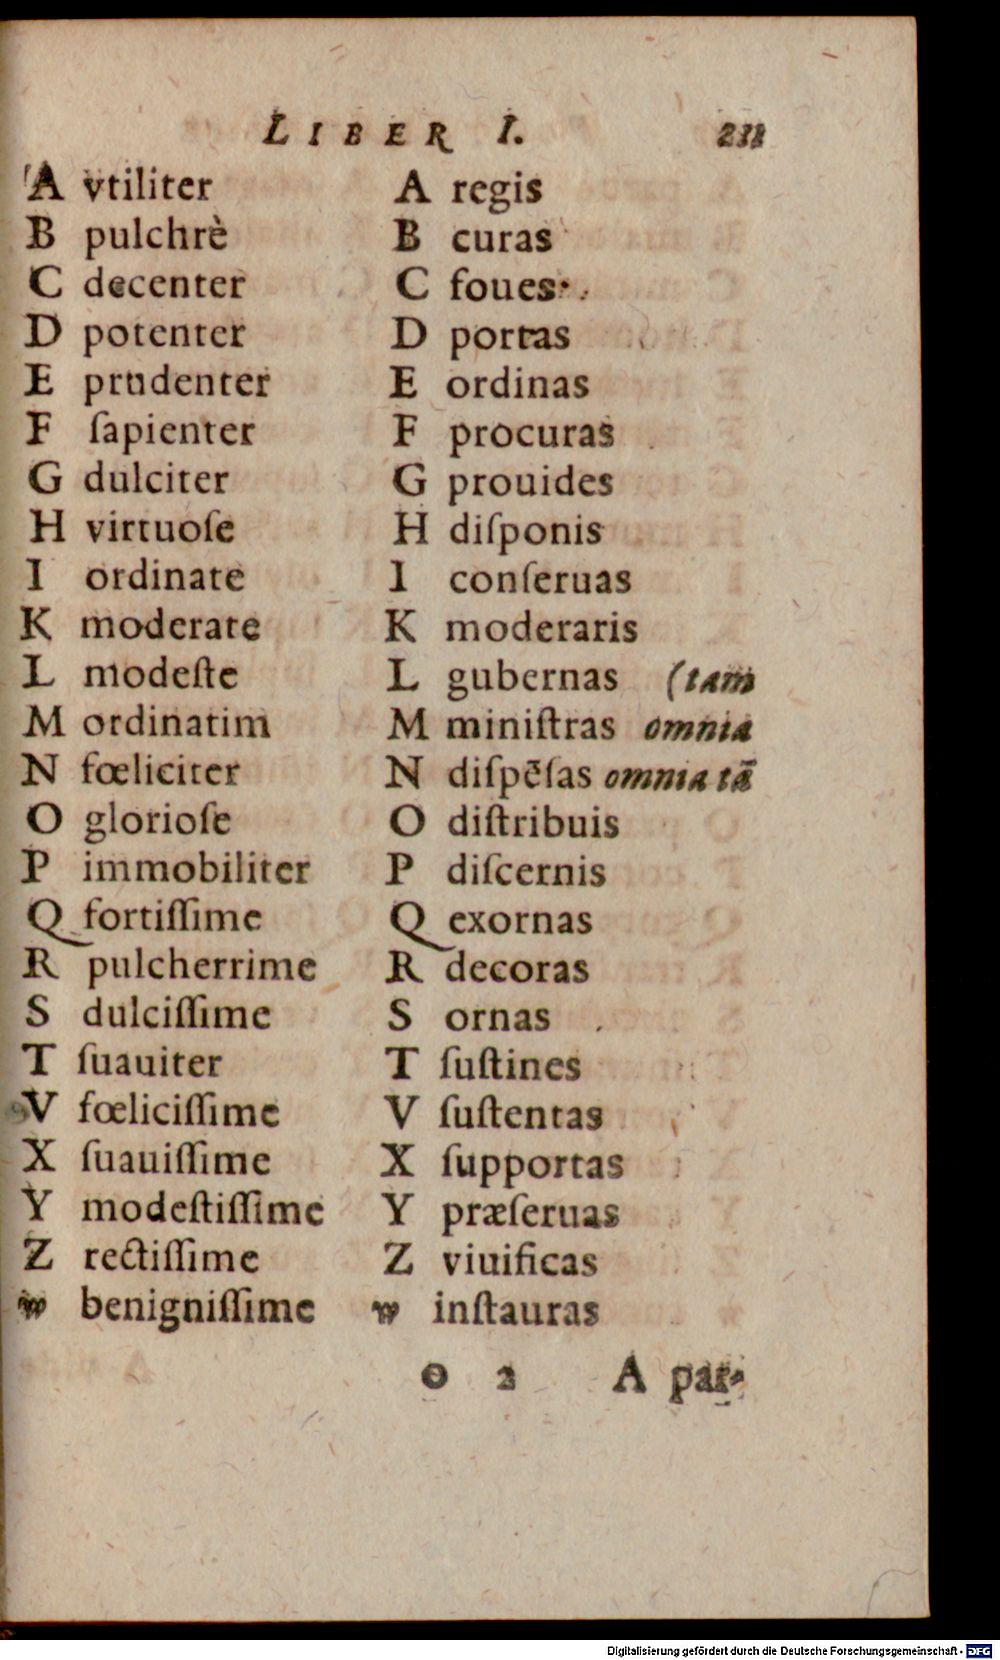 LIBER I. 211
A vtiliter A regis
B pulchrè B curas
C decenter C foues
D potenter D portas
E prudenter E ordinas
F ſapienter F procuras
G dulciter G prouides
H virtuoſe H diſponis
I ordinate I conſeruas
K moderate K moderaris
L modeſte L gubernas (tam
M ordinatim M miniſtras omnia
N fœliciter N diſpēſas omnia tā
O glorioſe O diſtribuis
P immobiliter P diſcernis
Q fortiſſime Q exornas
R pulcherrime R decoras
S dulciſſime S ornas
T ſuauiter T ſuſtines
V fœliciſſime V ſuſtentas
X ſuauiſſime X ſupportas
Y modeſtiſſime Y præſeruas
Z rectiſſime Z viuificas
w benigniſſime w inſtauras
O 2 A par-
Digitalisierung gefördert durch die Deutsche Forschungsgemeinschaft - DFG